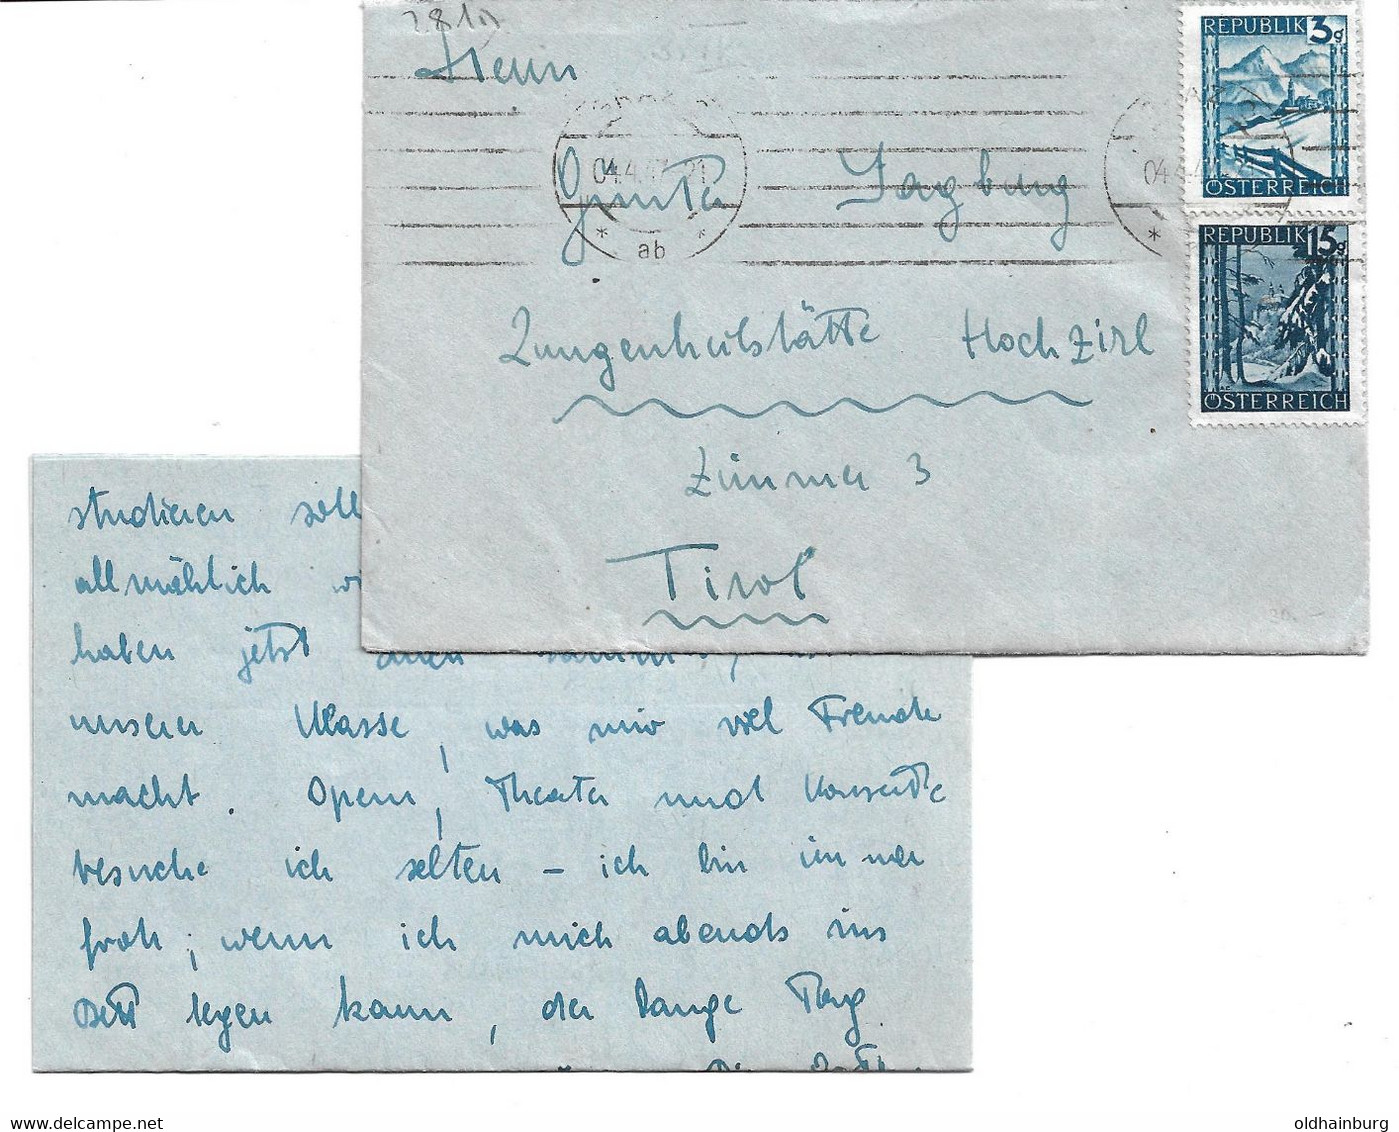 Herrn
REPUBLIK 3g
04.4.47 21
Günter Jagburg
ÖSTERREICH
* ab *
REPUBLIK 15g
Lungenheilstätte Hochzirl
ÖSTERREICH
Zimmer 3
Tirol
studieren soll
allmählich
haben jetzt einen
unserer Klasse, was mir viel Freude
macht. Opern, Theater und Konzerte
besuche ich selten – ich bin immer
froh, wenn ich mich abends ins
Bett legen kann, der lange Tag
www.delcampe.net
oldhainburg